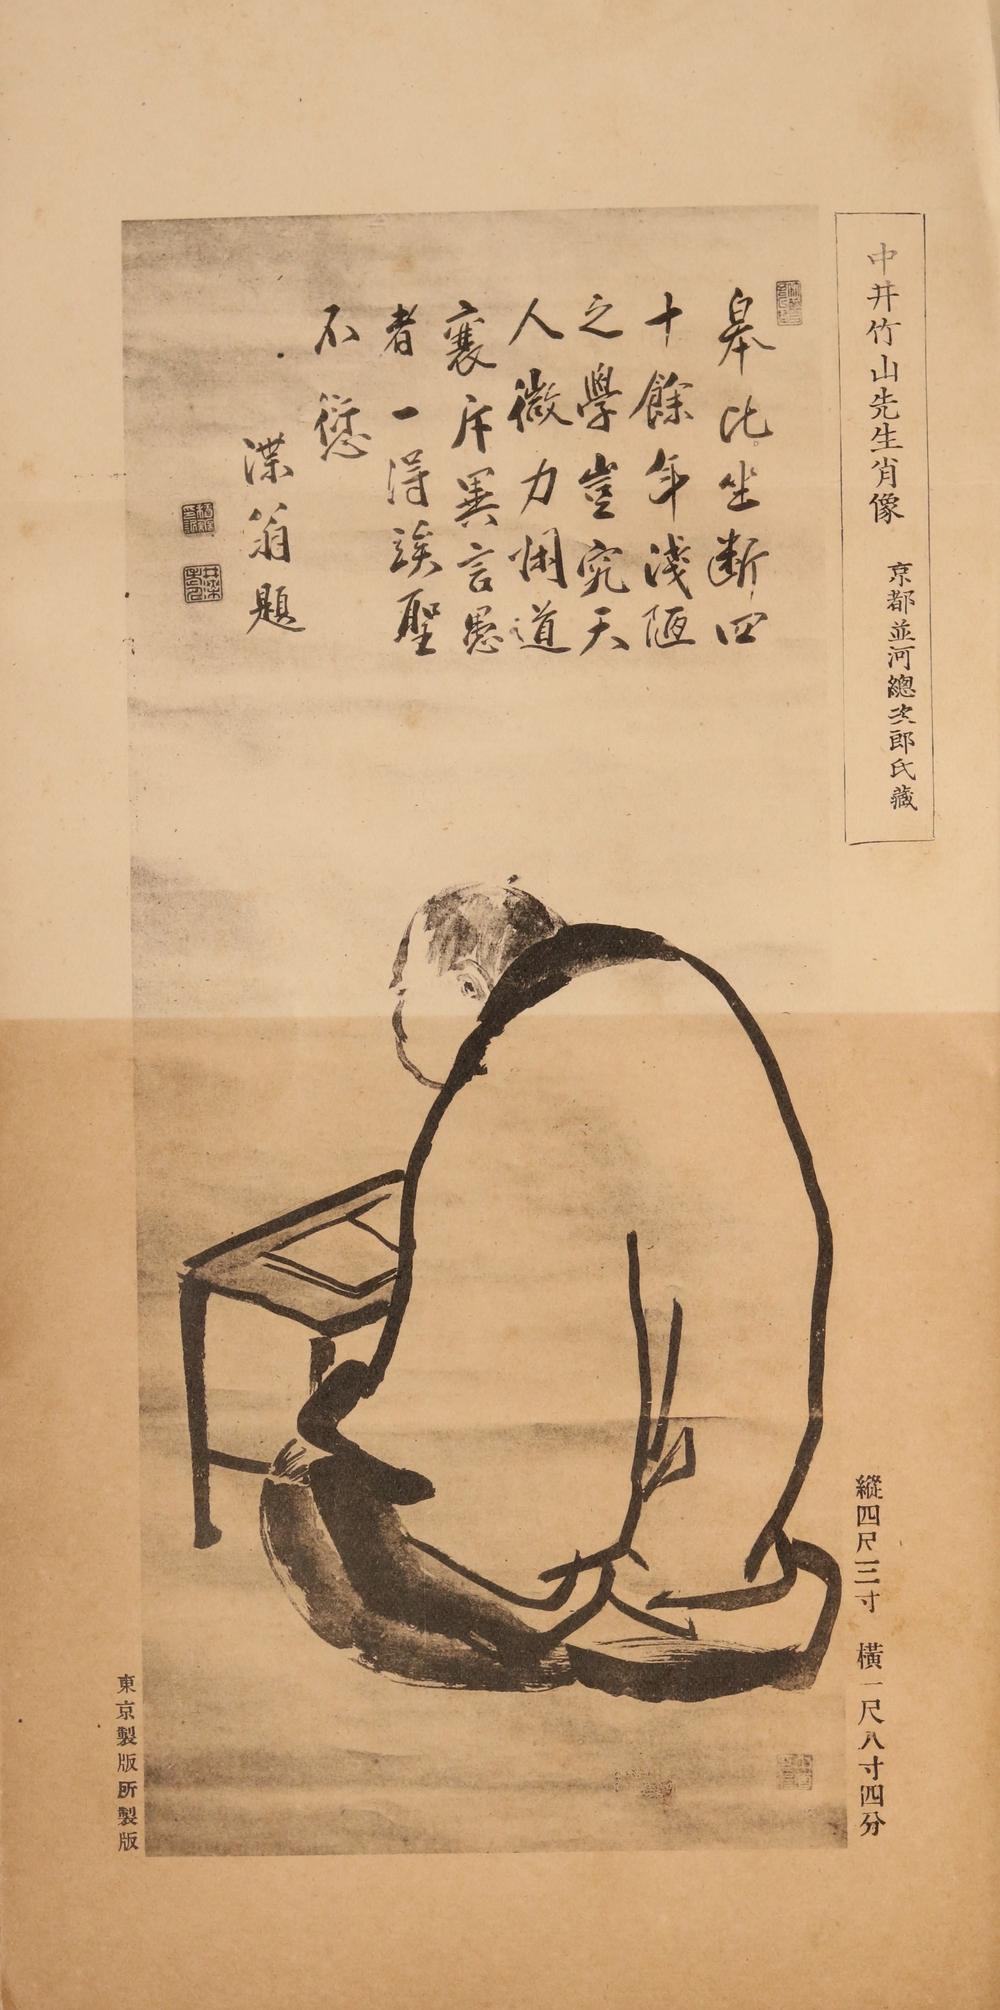 中井竹山先生肖像
京都並河總次郎氏藏
皋比坐斷四
十餘年淺陋
之學豈究天
人微力閑道
襄斥異言愚
者一得誒聖
不愆
渫翁題
縱四尺三寸　橫一尺八寸四分
東京製版所製版